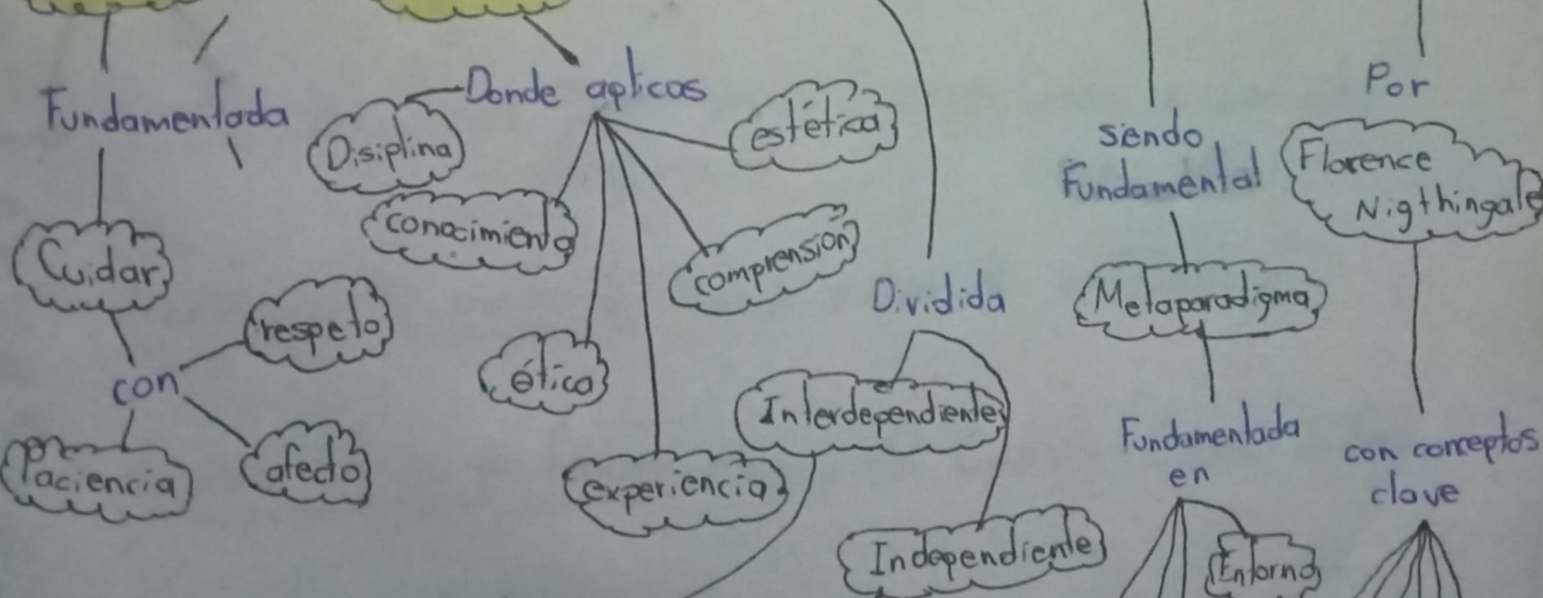 Fundamentada
Cuidar
con
respeto
Paciencia
afecto
Donde aplicas
Disiplina
conocimiento
ética
experiencia
comprensión
estética
Dividida
Interdependiente
Independiente
siendo
Fundamental
Metaparadigma
Fundamentada
en
Entorno
Por
Florence
Nigthingale
con conceptos
clave